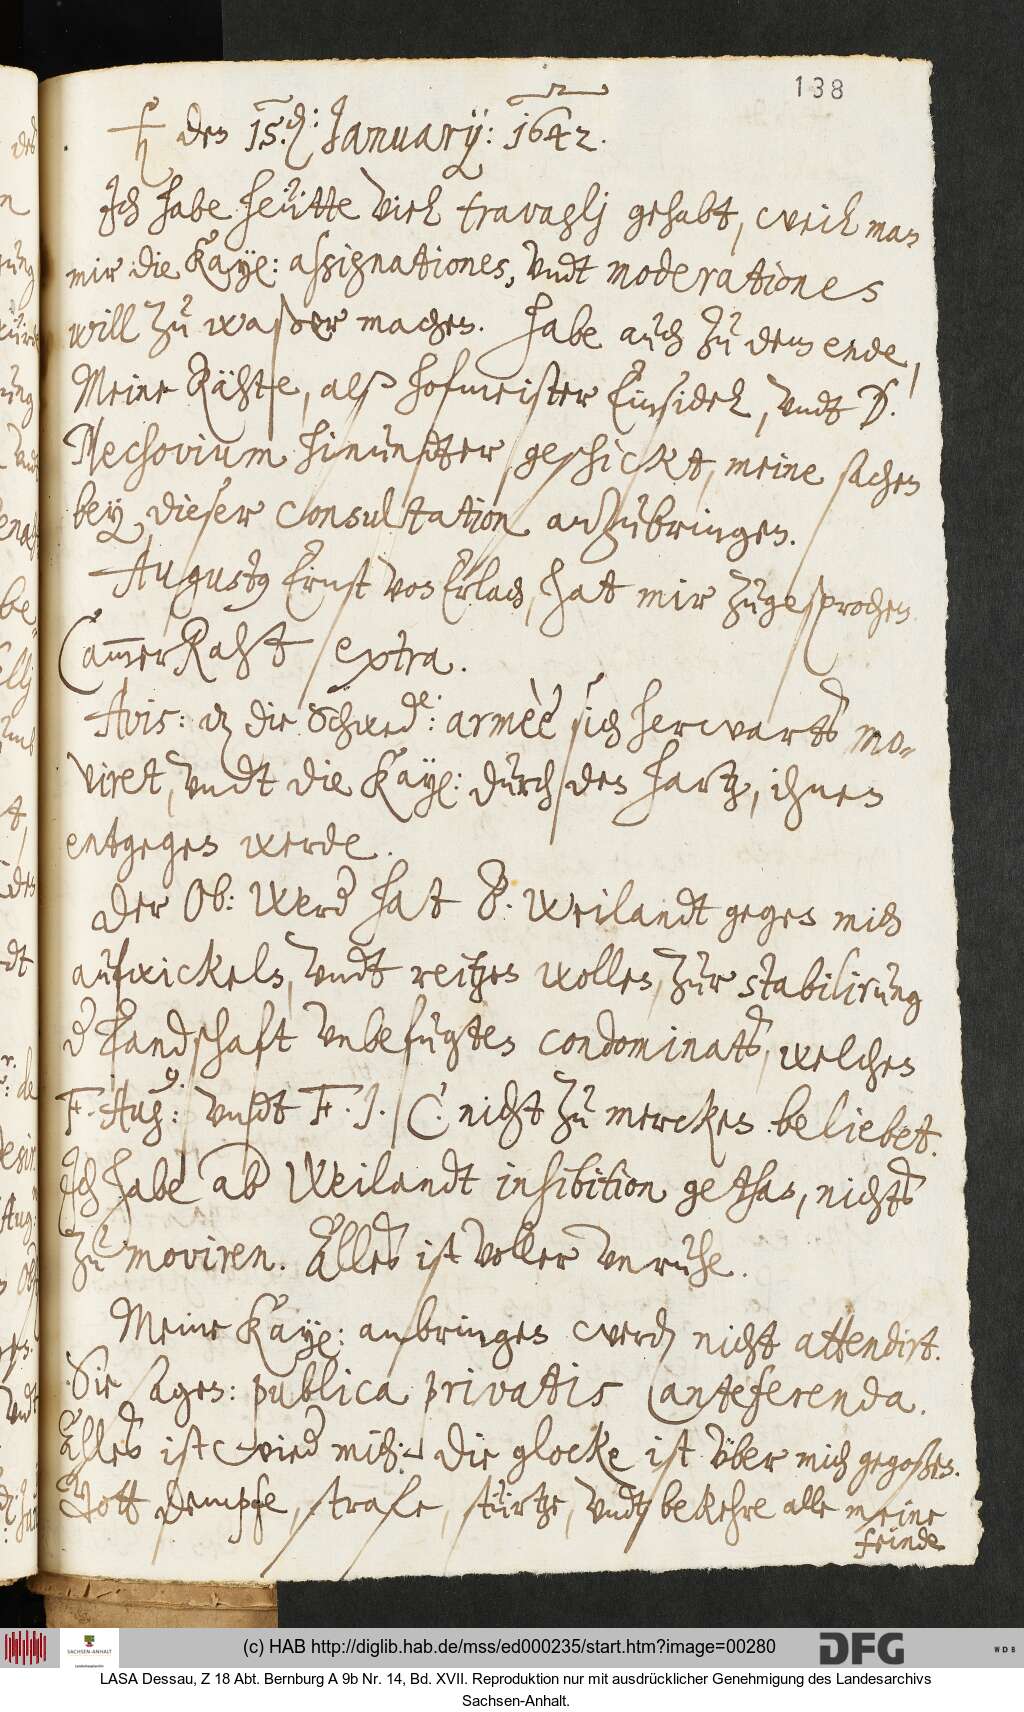 138
♄ den 15.den: January: 1642.
Ich habe heütte viel travaglj gehabt, weil man
mir die Kaÿe: assignationes, undt moderationes
will zu waßer machen. habe auch zu dem ende,
Meine Rähte, alß hofmeister Einsidel, undt D.
Mechovium hinundter geschickt, meine sachen
bey dieser consultation anzubringen.
Augustus Ernst von Erlach, hat mir zugesprochen
CammerRaht extra.
Avis: daß die Schwede: armèè sich herwarts mo-
viret, undt die Kaÿe: durch den hartz, ihnen
entgegen werde.
Der Ob: Werder hat D. Weilandt gegen mich
aufwickeln, undt reitzen wollen, zur stabilirung
der Landschaft unbefugten condominats, welches
F. Aug: undt F. J. C. nicht zu mercken beliebet.
Ich habe ab Weilandt inhibition gethan, nichts
zu moviren. Alles ist voller unruhe.
Meine Kaÿe: anbringen werden nicht attendirt.
Sie sagen: publica privatis anteferenda.
Alles ist wieder mich: die glocke ist über mich gegoßen.
Gott dempfe, strafe, stürtze, undt bekehre alle meine
feinde
(c) HAB http://diglib.hab.de/mss/ed000235/start.htm?image=00280
SACHSEN-ANHALT
DFG
WDB
LASA Dessau, Z 18 Abt. Bernburg A 9b Nr. 14, Bd. XVII. Reproduktion nur mit ausdrücklicher Genehmigung des Landesarchivs
Sachsen-Anhalt.